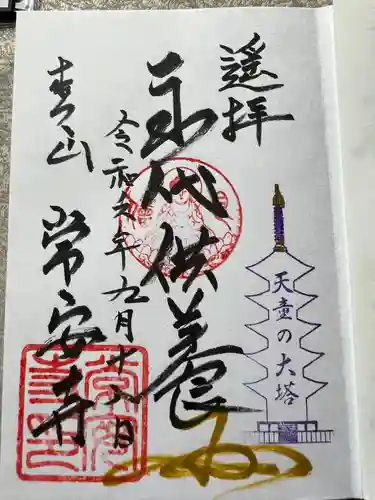 遥拝
永代供養
天童の大塔
令和六年九月十六日
青山 常安寺